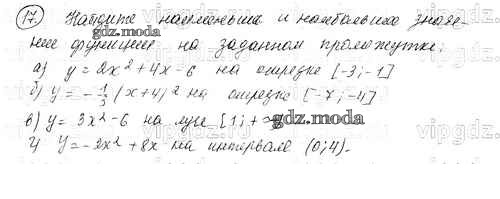 17. Найдите наименьшие и наибольшие значе-
ние функции на заданном промежутке:
а) y = 2x² + 4x - 6 на отрезке [-3; -1]
б) y = -1/3 (x+4)² на отрезке [-7; -4]
в) y = 3x² - 6 на луче [1; +∞)
г) y = -2x² + 8x на интервале (0; 4).
gdz.moscow
gdz.moscow